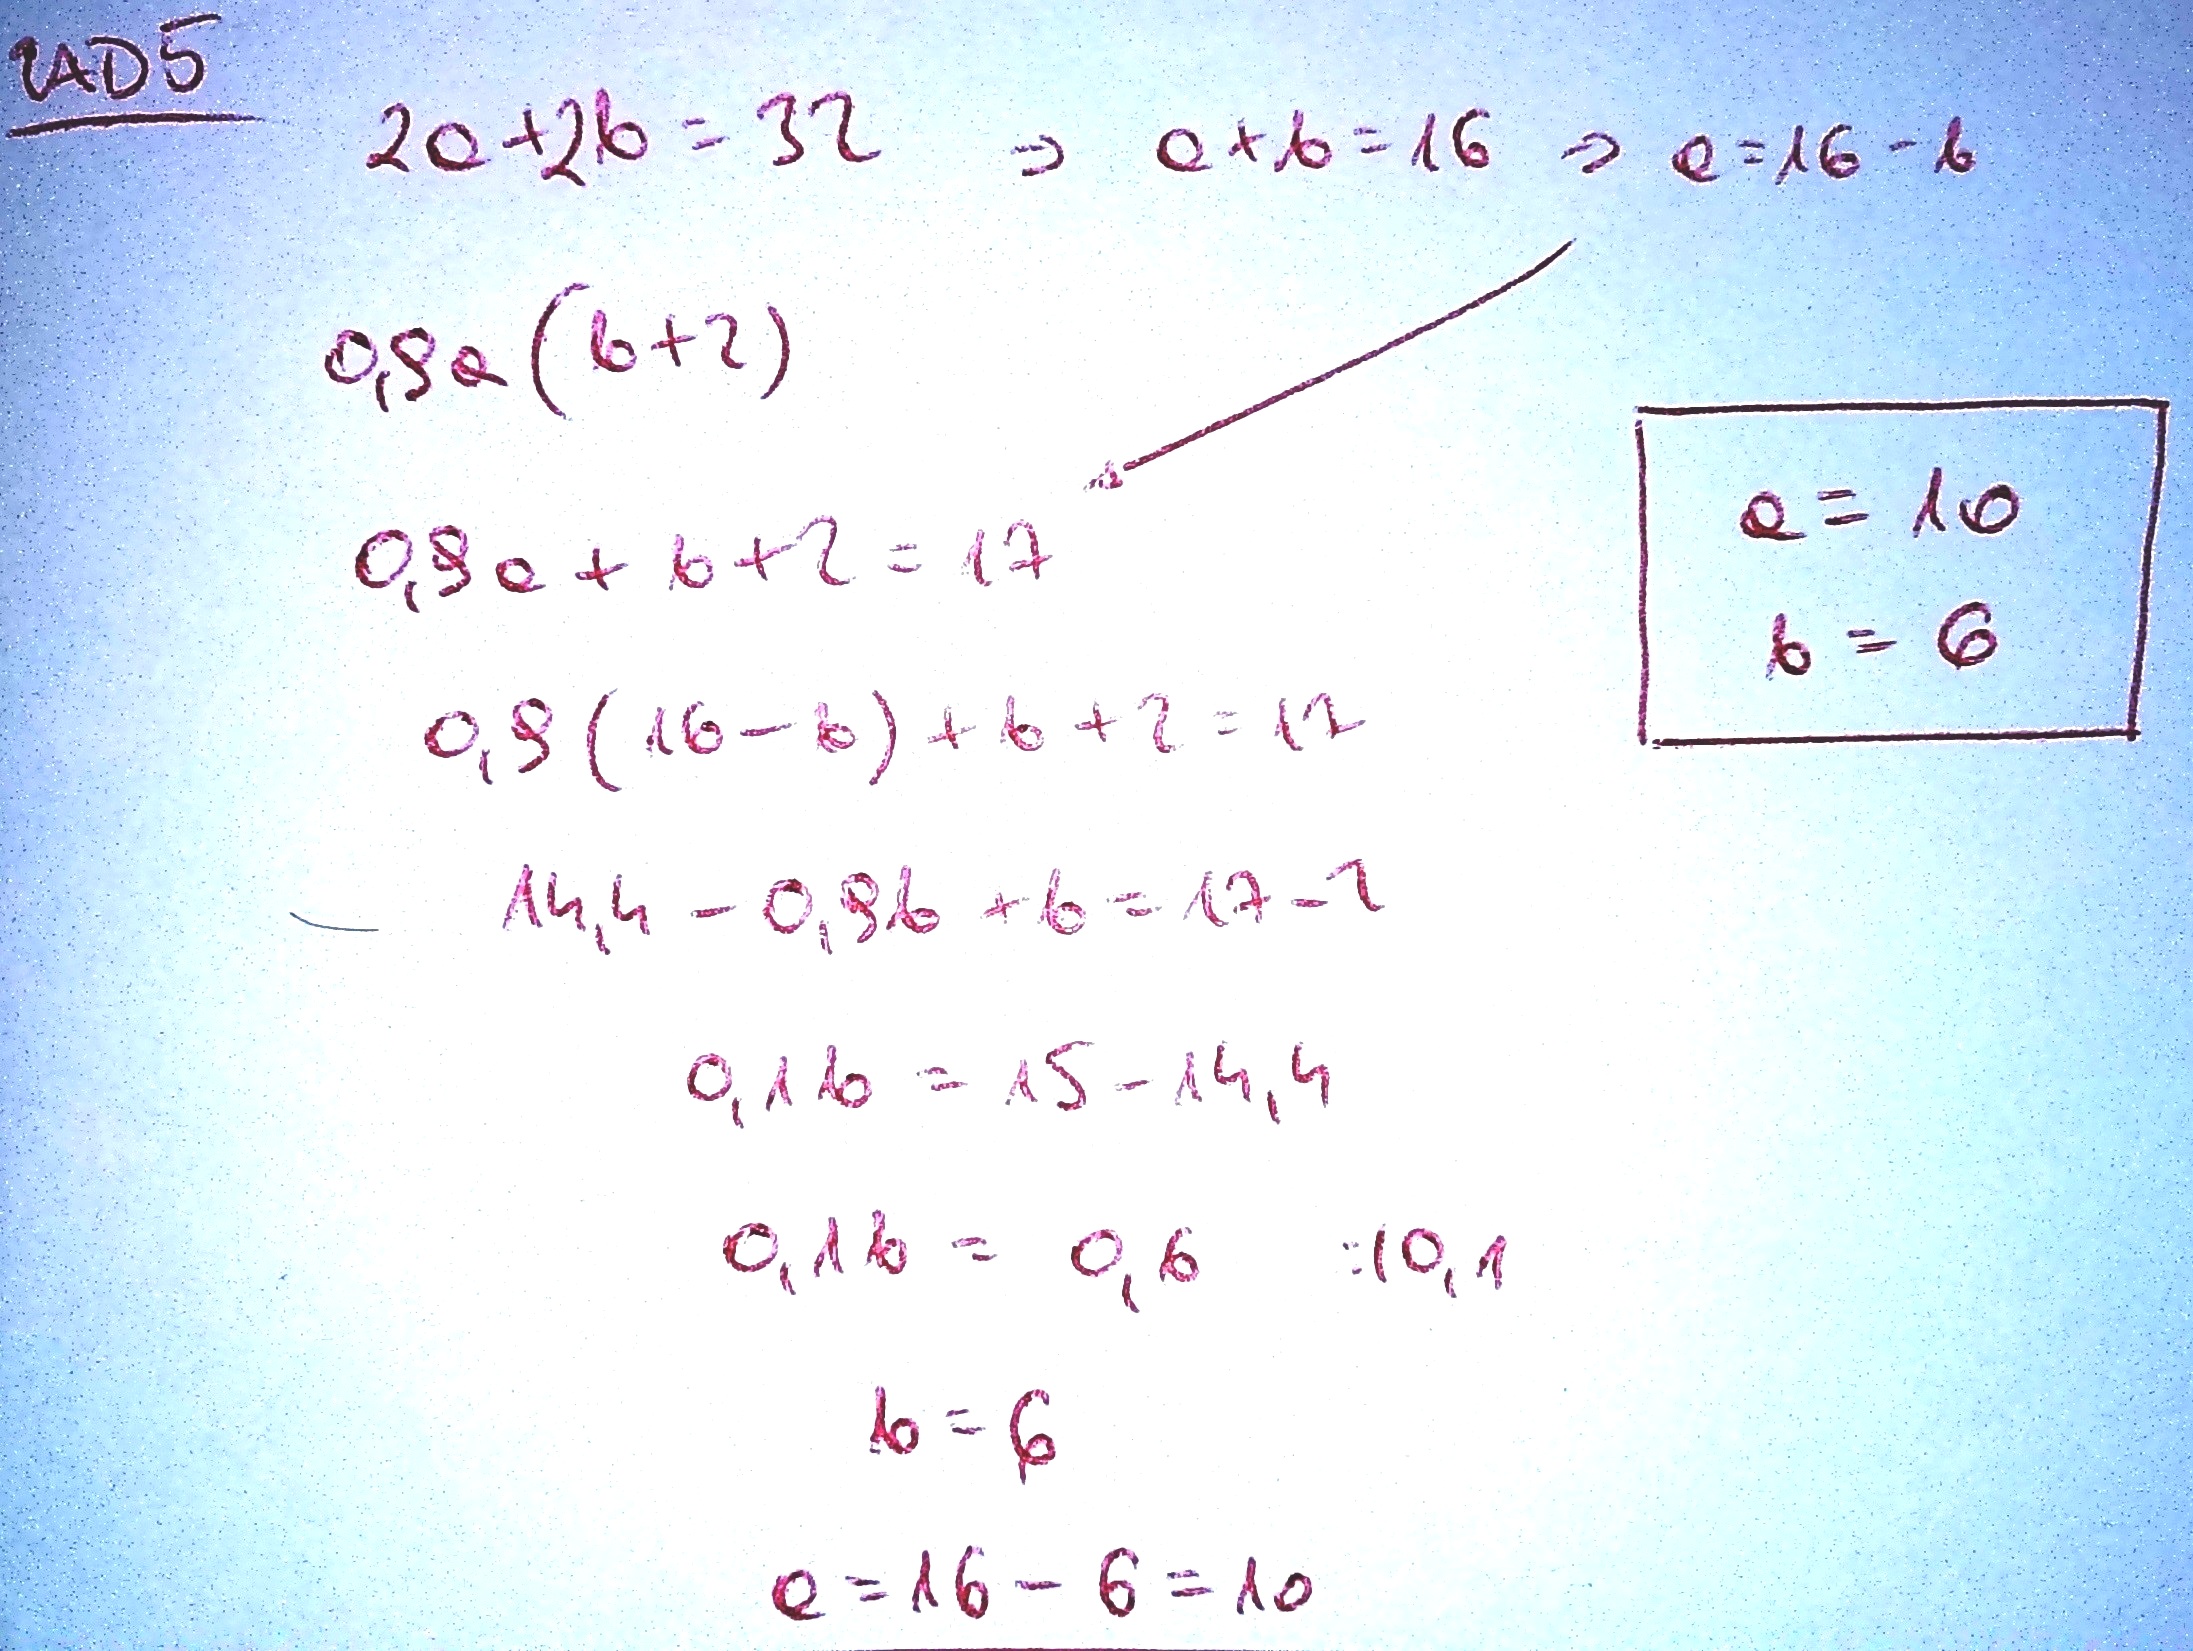 ZAD5
2a+2b=32 => a+b=16 => a=16-b
0,9a(b+2)
0,9a+b+2=17
a=10
b=6
0,9(16-b)+b+2=17
14,4-0,9b+b=17-2
0,1b=15-14,4
0,1b=0,6 :|0,1
b=6
a=16-6=10